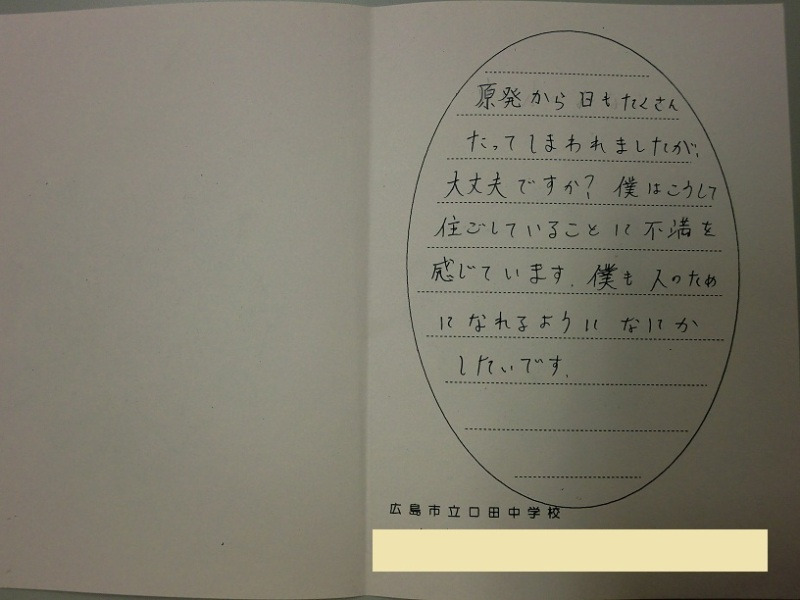 原発から日もたくさん
たってしまわれましたが、
大丈夫ですか？僕はこうして
住ごしていることに不満を
感じています。僕も人のため
になれるようになにか
したいです。
広島市立口田中学校